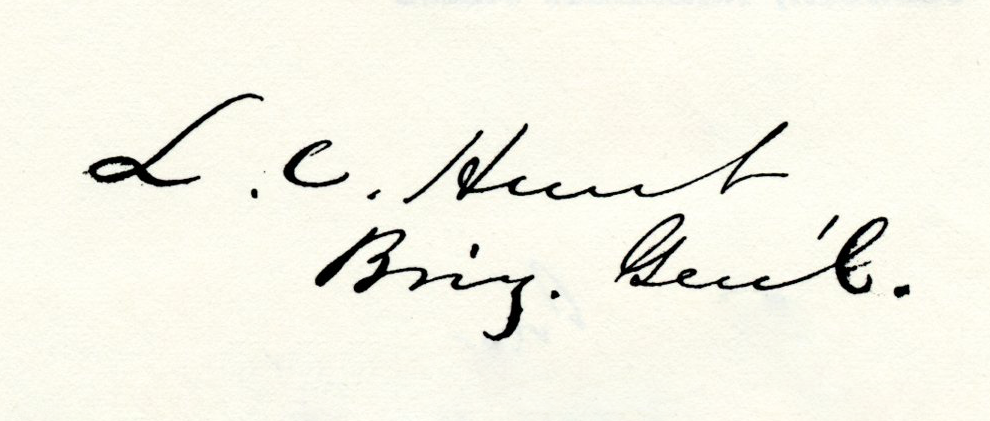 L. C. Hunt
Brig. Gen'l.